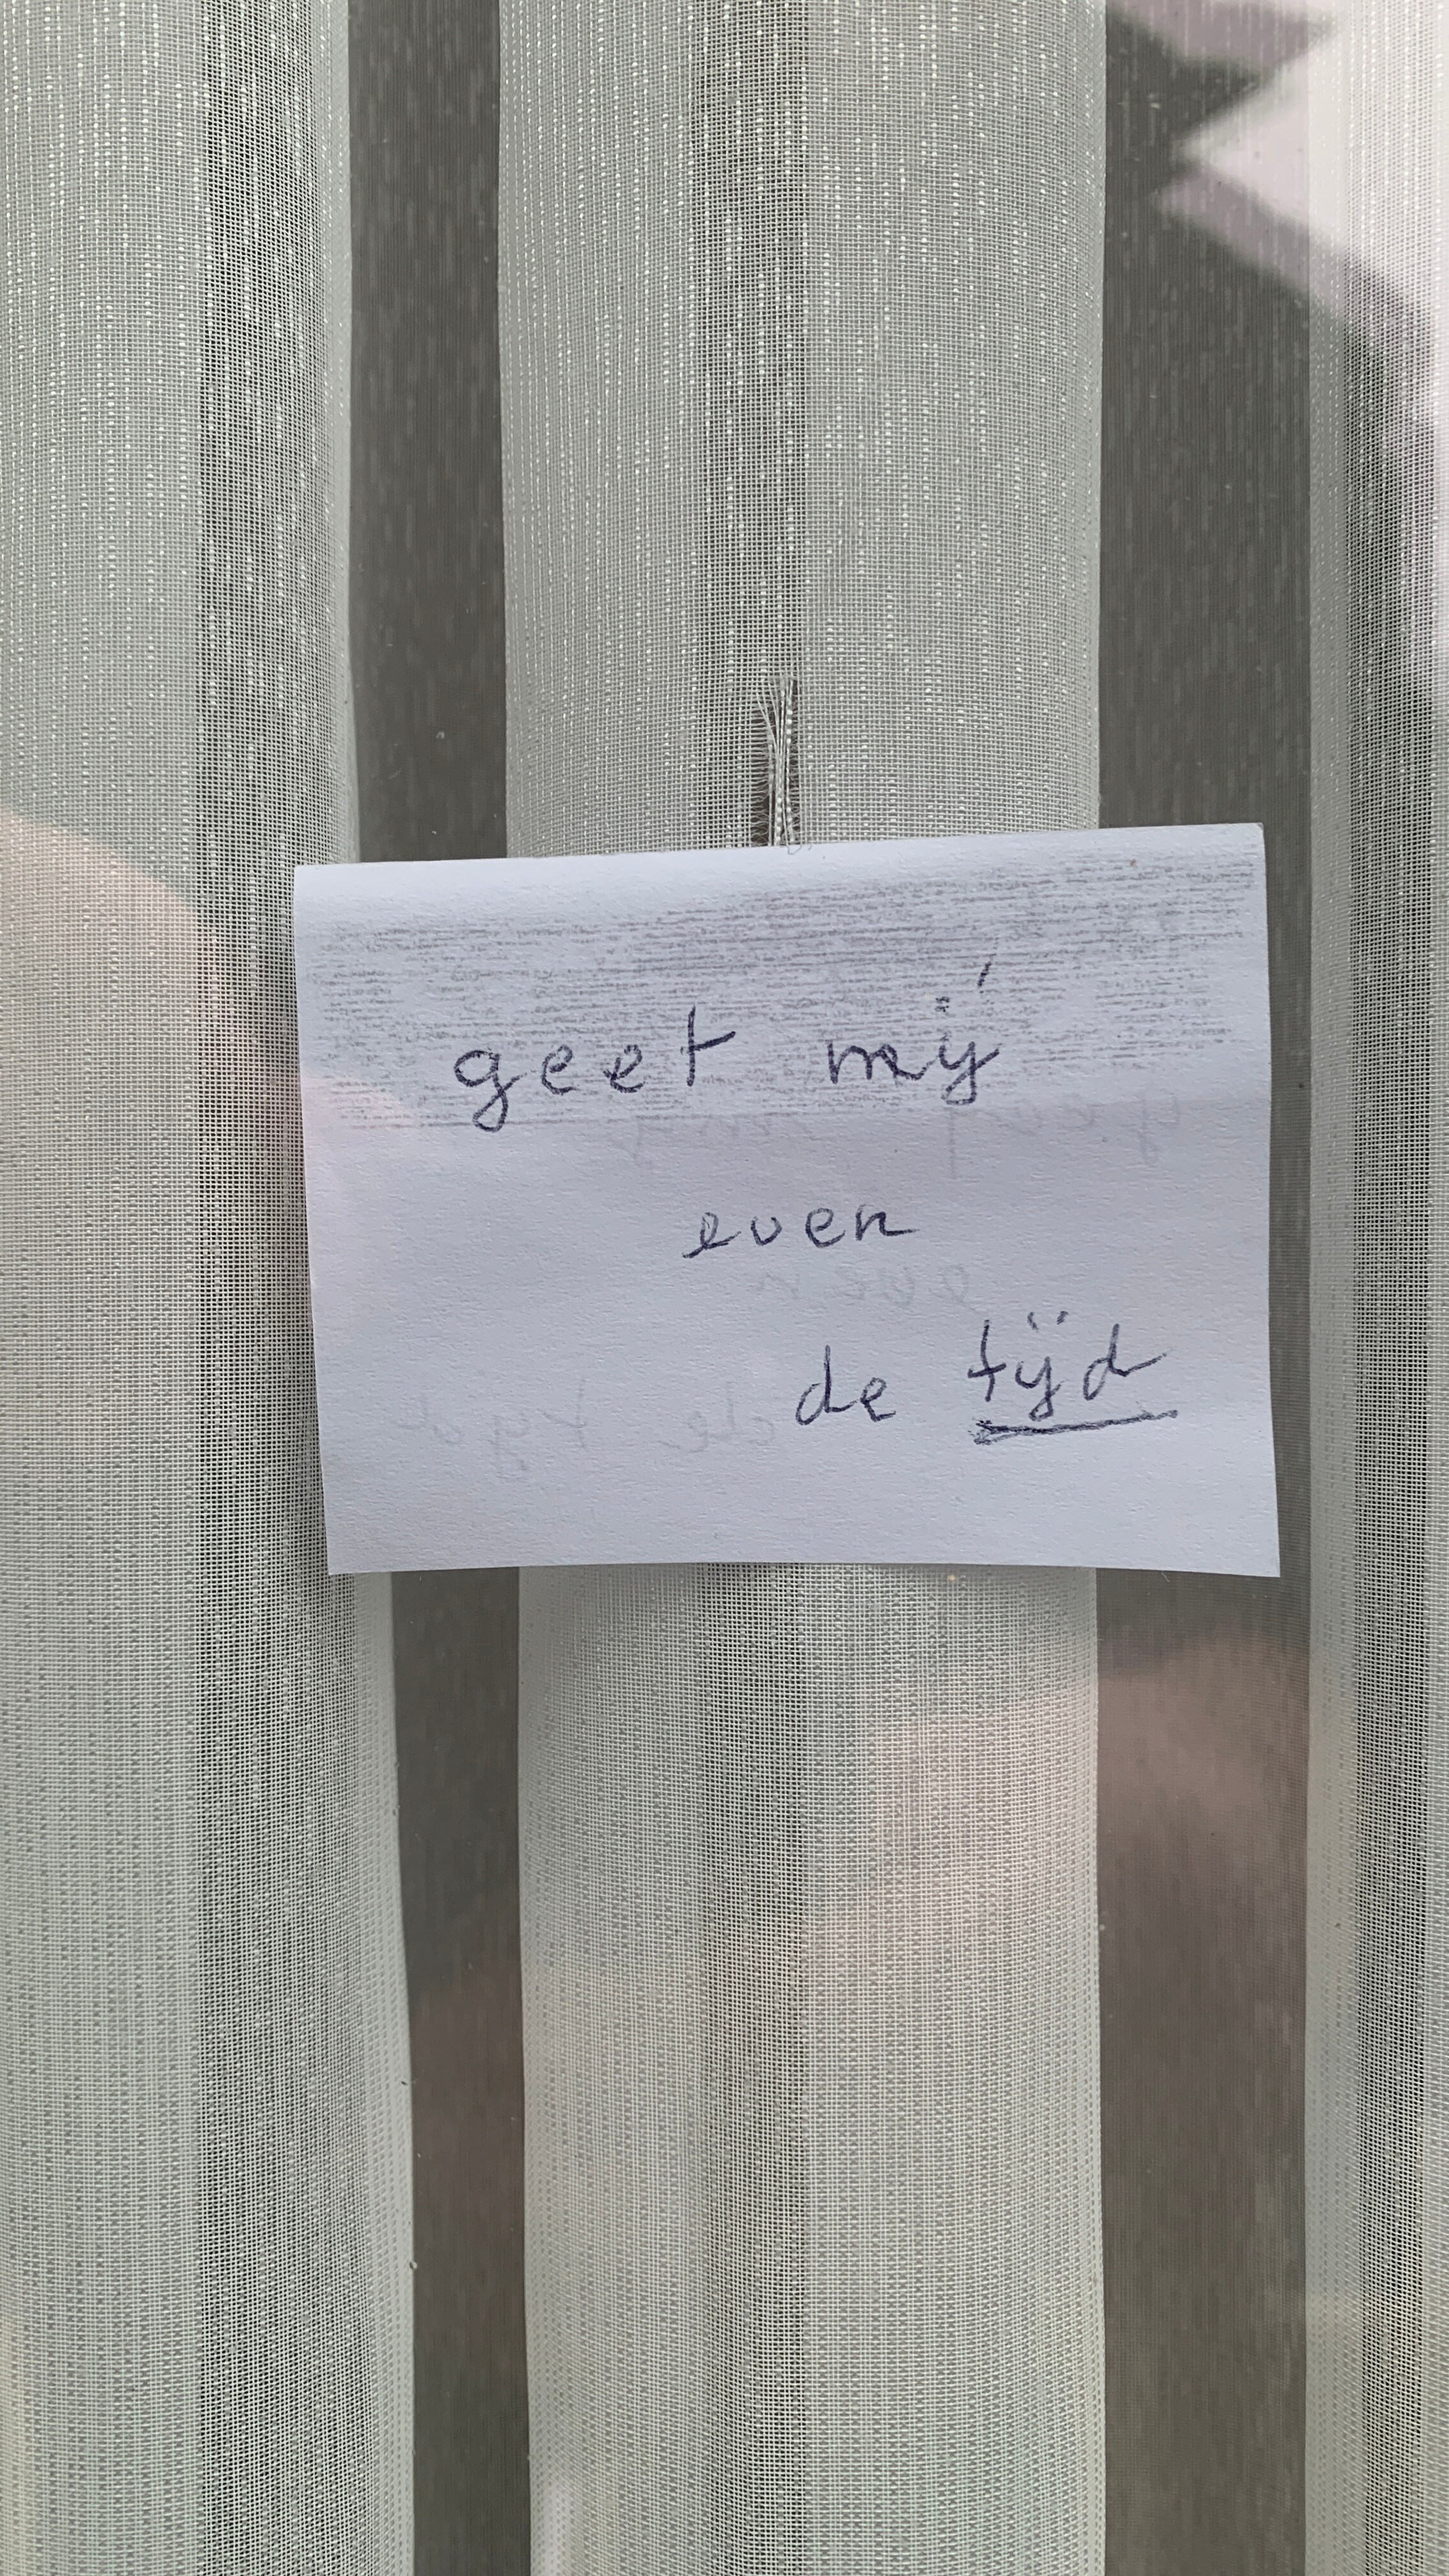 geef mij
even
de tijd